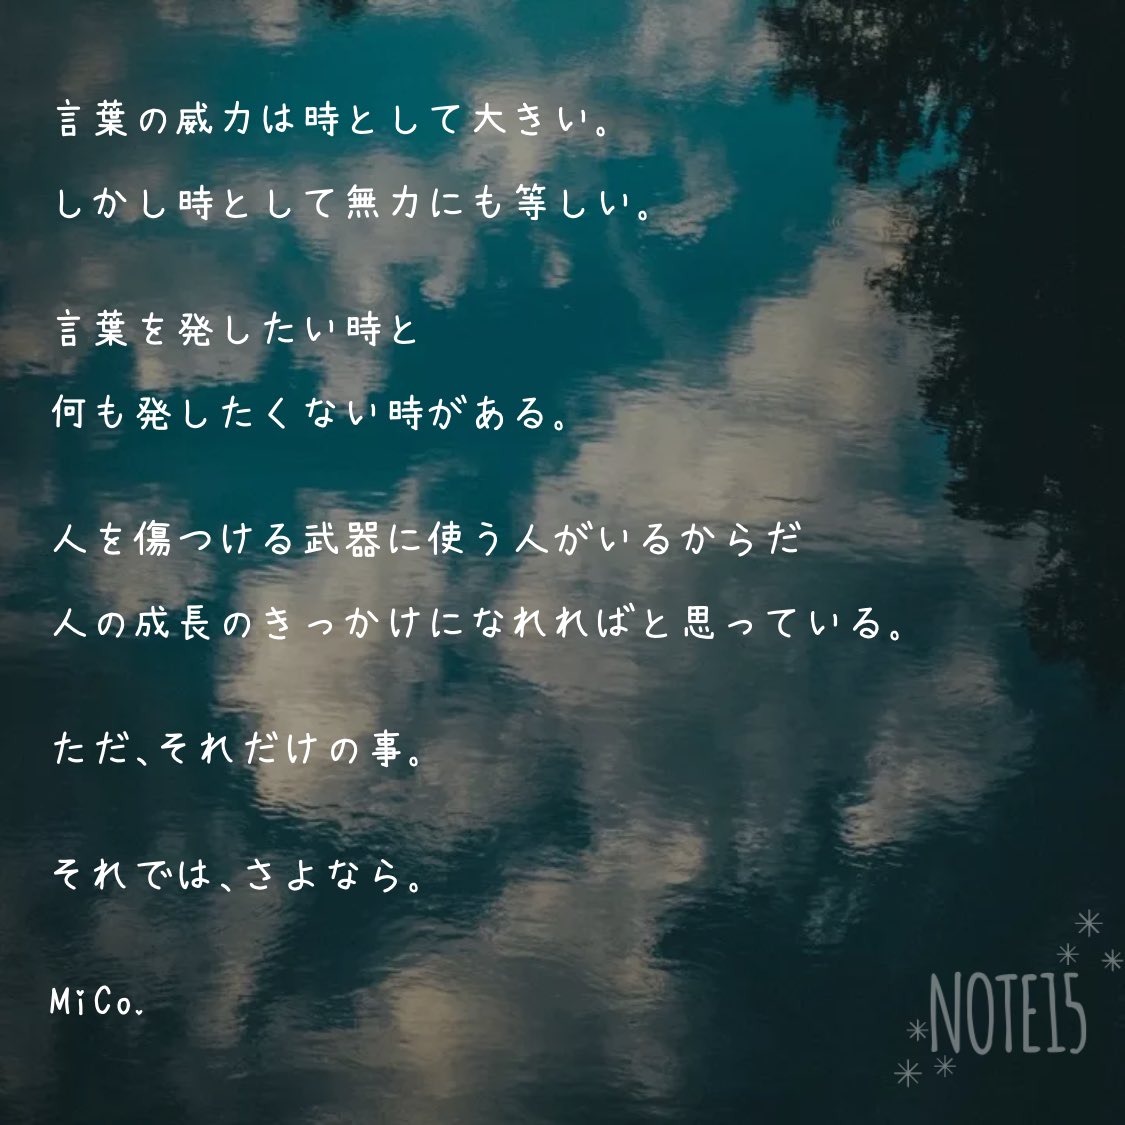 言葉の威力は時として大きい。
しかし時として無力にも等しい。
言葉を発したい時と
何も発したくない時がある。
人を傷つける武器に使う人がいるからだ
人の成長のきっかけになれればと思っている。
ただ、それだけの事。
それでは、さよなら。
MiCo.
NOTE15